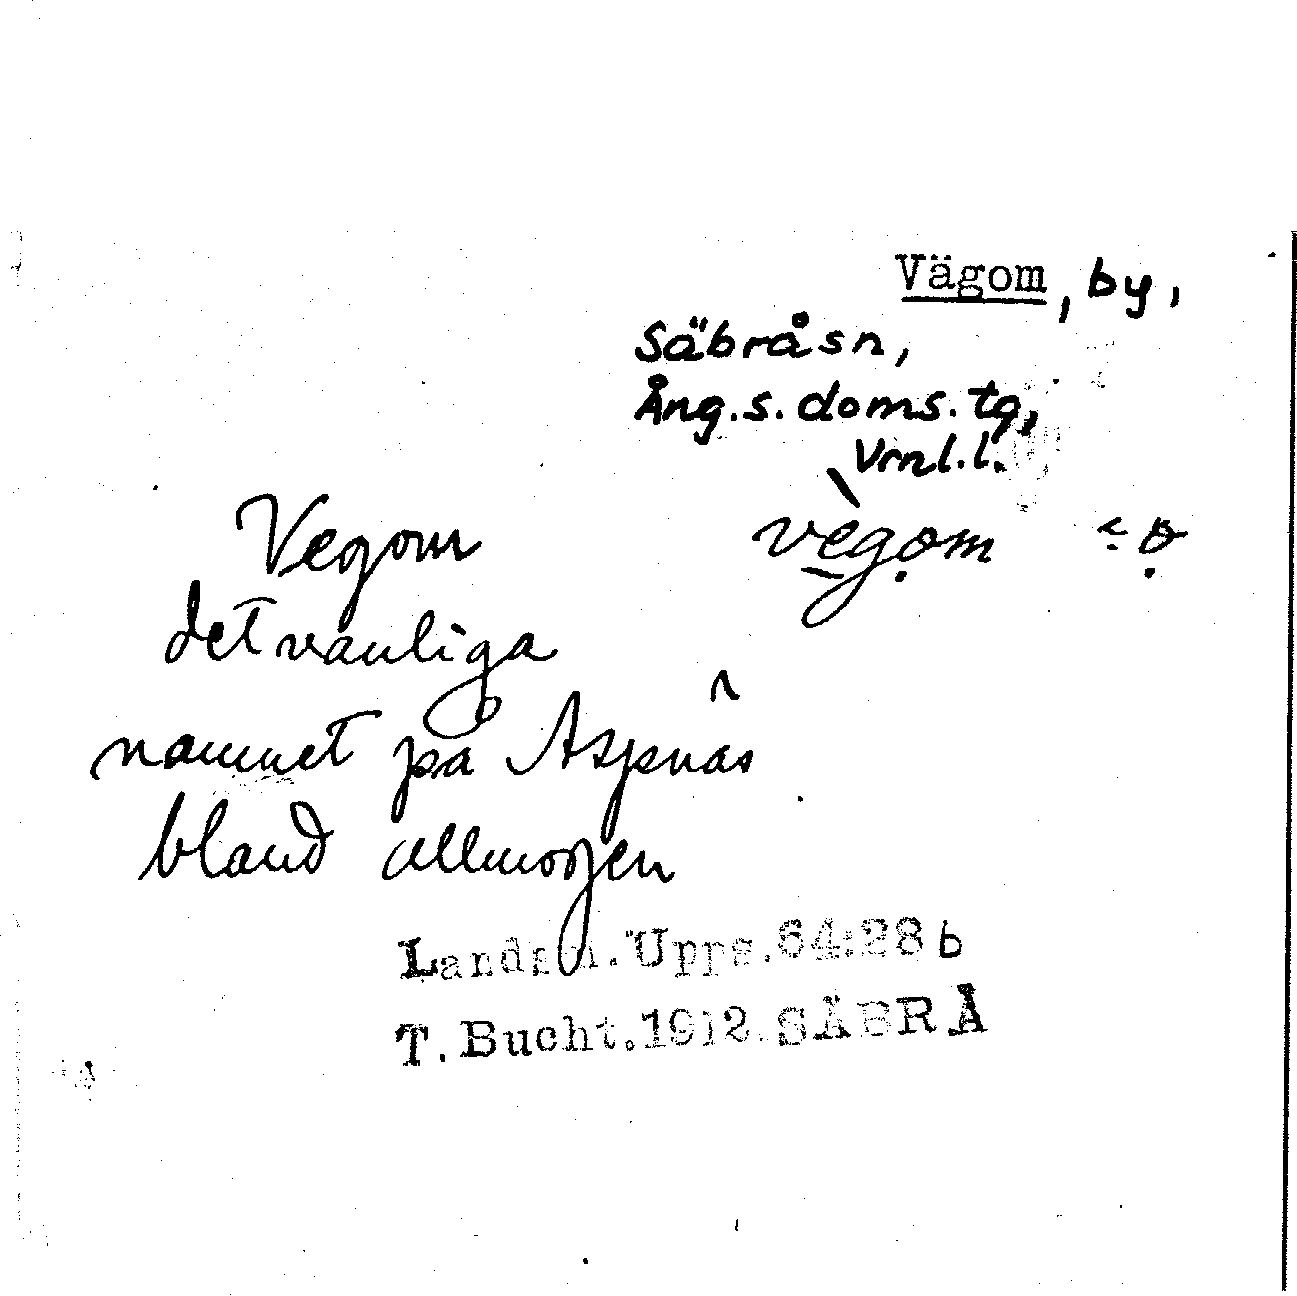 Vägom, by,
Säbrå sn,
Ång. s. doms. tg,
Vrnl.l.
Vegom
vègom
det vanliga
namnet på Aspnäs
bland allmogen
Landsm. Upps. 64:28 b
T. Bucht. 1912. SÄBRÅ